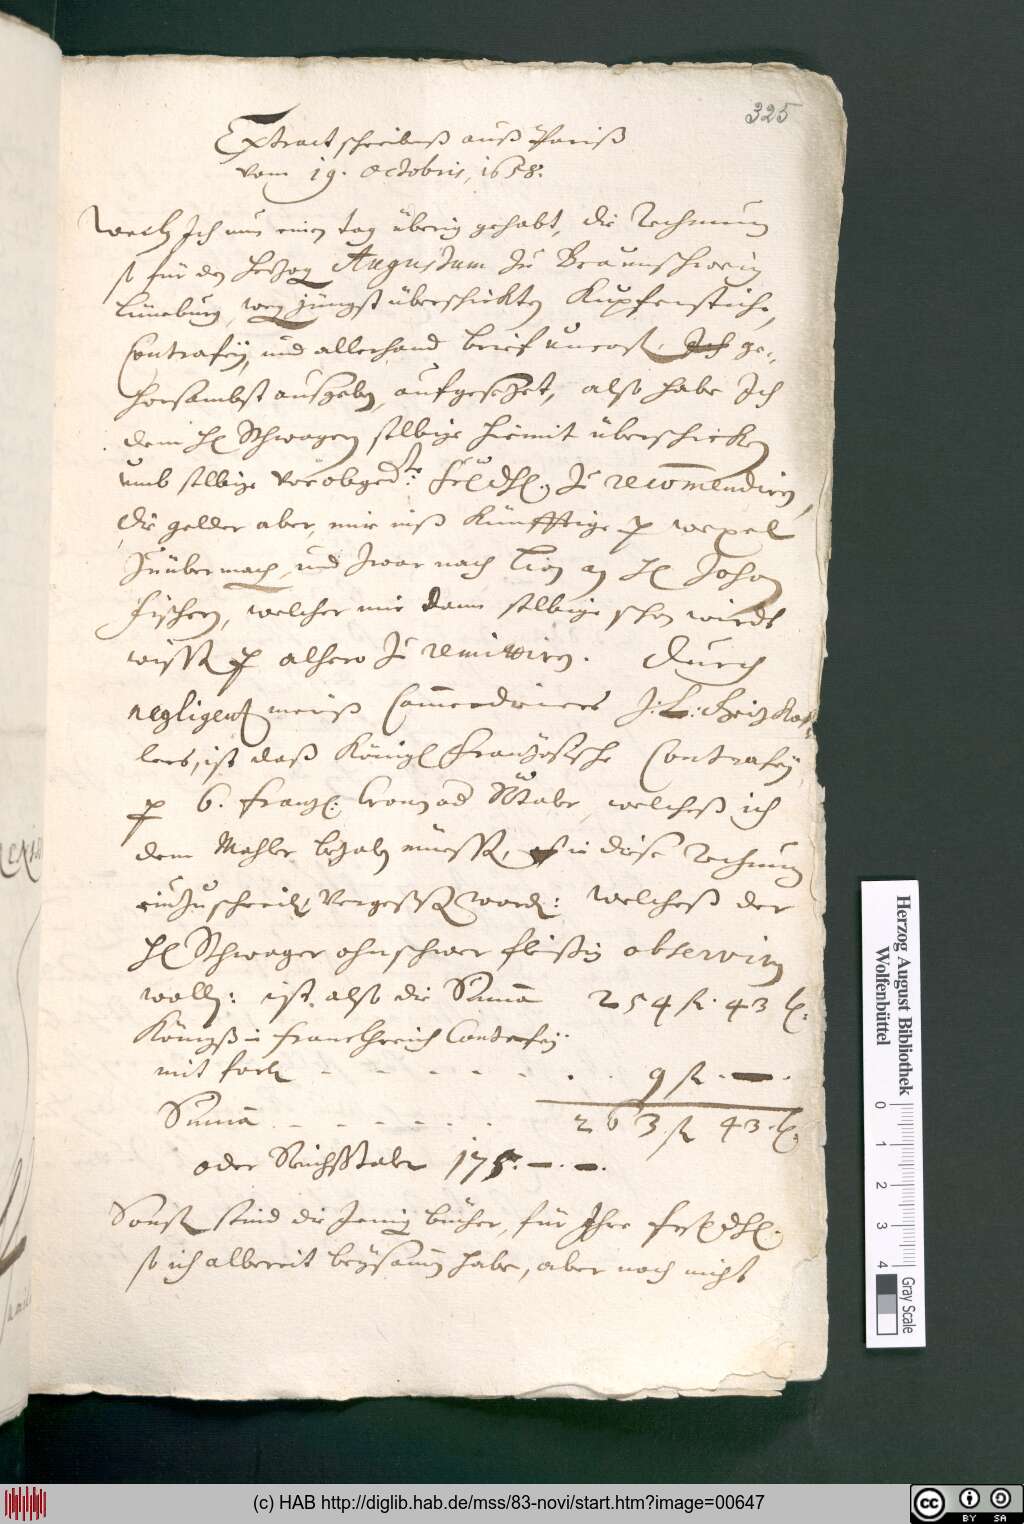 325
Extract schreibenß auß Pariß
vom 19. Octobris, 1658.
Weiln Ich nun einen tag übrig gehabt, die Rechnung
so für den Herzog Augustum zu Braunschweig
Lüneburg, wegen jüngst überschickten Kupferstiche,
Contrafey, und allerhand brief uncost. Ich ge-
horsambst außgeben, aufgesezet, also habe Ich
dem H Schwagern selbige hiemit überschicken
umb selbige vorobged: zu recommendiren,
die gelder aber, mir inß Künfftige p wexel
zuübermachen, und zwar nach Lion an H Johan
Fischern, welcher mir dann selbige schon wirdt
wissen p alhero zu remittiren. Durch
negligentz meiß Cammerdieners J: L: Fritz Keß
lers, ist daß Königl Französische Contrafey
p 6. Franz: Cronen od Rtaler, welcheß ich
dem Mahler bezalen müessen, in diese Rechnung
einzuschreiben Vergessen worden: welcheß der
H Schwager ohnschwer fleißig observiren
wolle: ist also die Summa 254 fl. 43 k.
Königß in Franckhreich Contrefey
mit fort - - - - - . . 9 fl. —.
Summa - - - - - - 263 fl 43. k.
oder Reichßtaler 175. —. —.
Sonst sind die Jenig bücher, für Ihre
so ich albereit beysamen habe, aber noch nicht
Herzog August Bibliothek
Wolfenbüttel
0 1 2 3 4
Gray Scale
(c) HAB http://diglib.hab.de/mss/83-novi/start.htm?image=00647
cc BY SA